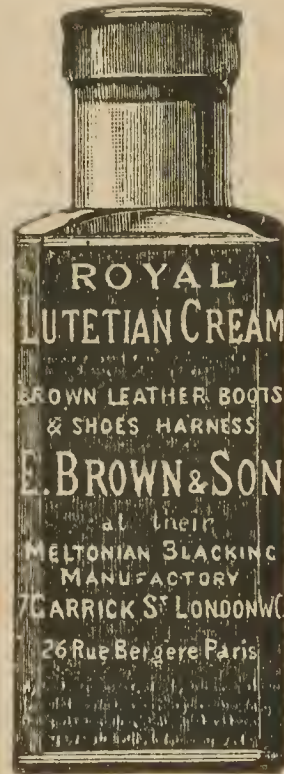 ROYAL
LUTETIAN CREAM
BROWN LEATHER BOOTS
& SHOES HARNESS
E. BROWN & SON
at their
MELTONIAN BLACKING
MANUFACTORY
7 GARRICK ST LONDON WC
26 Rue Bergere Paris